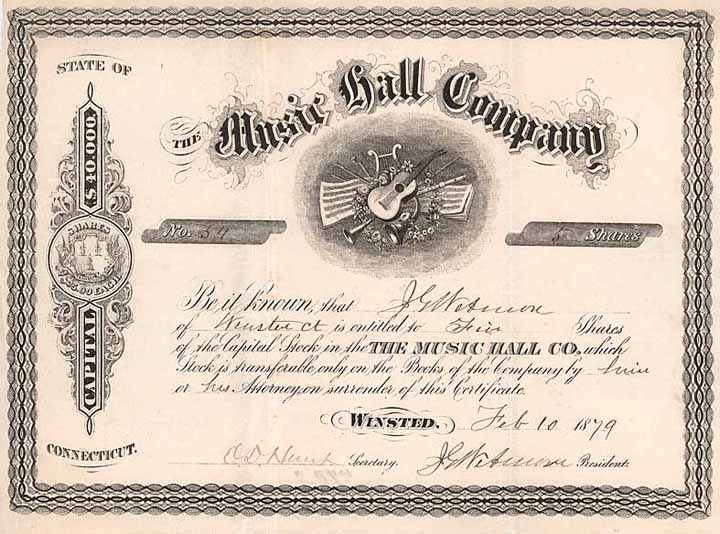 STATE OF
$40.000.
SHARES
$25.00 EACH
CAPITAL
CONNECTICUT.
THE Music Hall Company
No. 54
5 Shares
Be it Known, that J G Wetmore
of Winsted Ct is entitled to Five Shares
of the Capital Stock in the THE MUSIC HALL CO. which
Stock is transferable only on the Books of the Company by him
or his Attorney, on surrender of this Certificate.
WINSTED, Feb 10 1879
Secretary.
J G Wetmore President.